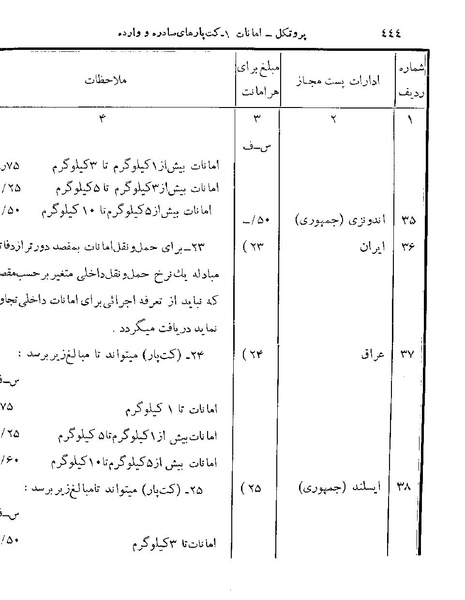 ۴۴۴ پروتکل ـ امانات ۱ـ کتپارهای صادره و وارده
شماره ردیف ادارات پست مجاز مبلغ برای هر امانت ملاحظات
۱ ۲ ۳ ۴
س-ف
امانات بیش از ۱ کیلوگرم تا ۳ کیلوگرم
امانات بیش از ۳ کیلوگرم تا ۵ کیلوگرم /۲۵
امانات بیش از ۵ کیلوگرم تا ۱۰ کیلوگرم /۵۰
۳۵ اندونزی (جمهوری) ۵۰/ـ
۳۶ ایران ۲۳) ۲۳ـ برای حمل و نقل امانات بمقصد دورتر از
مبادله یک نرخ حمل و نقل داخلی متغیر بر حسب
که نباید از تعرفه اجرائی برای امانات داخلی
نماید دریافت میگردد .
۳۷ عراق ۲۴) ۲۴ـ (کتپار) میتواند تا مبالغ زیر برسد :
س-ف
امانات تا ۱ کیلوگرم ۷۵
امانات بیش از ۱ کیلوگرم تا ۵ کیلوگرم /۲۵
امانات بیش از ۵ کیلوگرم تا ۱۰ کیلوگرم /۶۰
۳۸ ایسلند (جمهوری) ۲۵) ۲۵ـ (کتپار) میتواند تا مبالغ زیر برسد :
س-ف
امانات تا ۳ کیلوگرم /۵۰